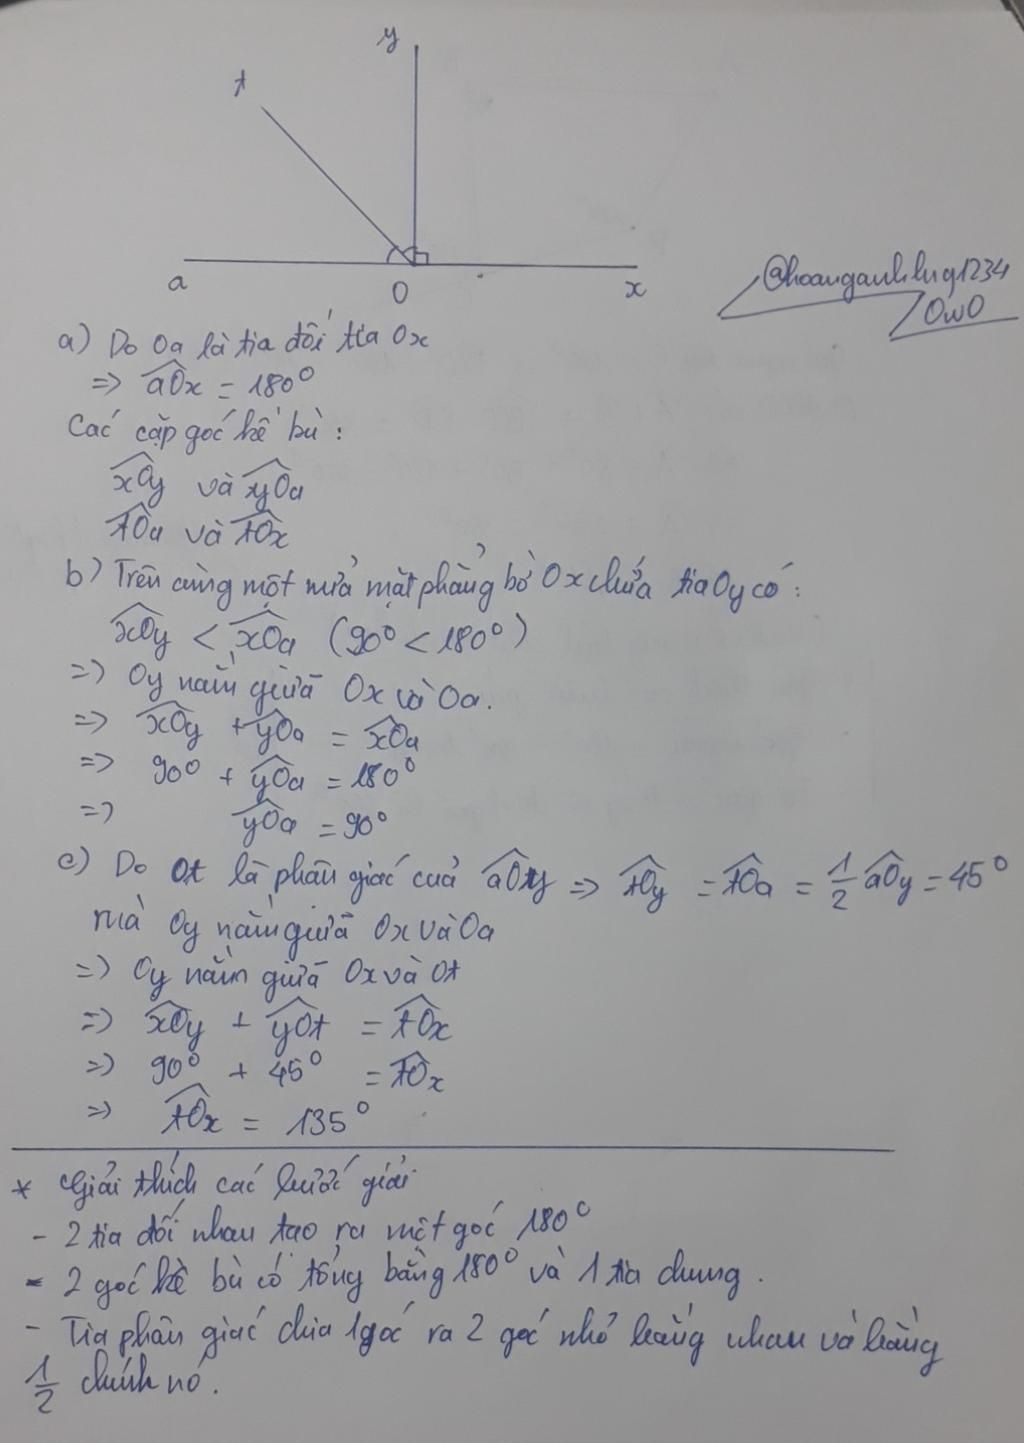 y
t
a
O
x
@hoanganhhug1234
OwO
a) Do Oa là tia đối tia Ox
=> aOx = 180°
Các cặp góc kề bù:
xOy và yOa
tOa và tOx
b) Trên cùng một nửa mặt phẳng bờ Ox chứa tia Oy có:
xOy < xOa (90° < 180°)
=> Oy nằm giữa Ox và Oa.
=> xOy + yOa = xOa
=> 90° + yOa = 180°
=> yOa = 90°
c) Do Ot là phân giác của aOy => tOy = tOa = 1/2 aOy = 45°
mà Oy nằm giữa Ox và Oa
=> Oy nằm giữa Ox và Ot
=> xOy + yOt = tOx
=> 90° + 45° = tOx
=> tOx = 135°
* Giải thích các bước giải
- 2 tia đối nhau tạo ra một góc 180°
- 2 góc kề bù có tổng bằng 180° và 1 tia chung.
- Tia phân giác chia 1 góc ra 2 góc nhỏ bằng nhau và bằng
1/2 chính nó.